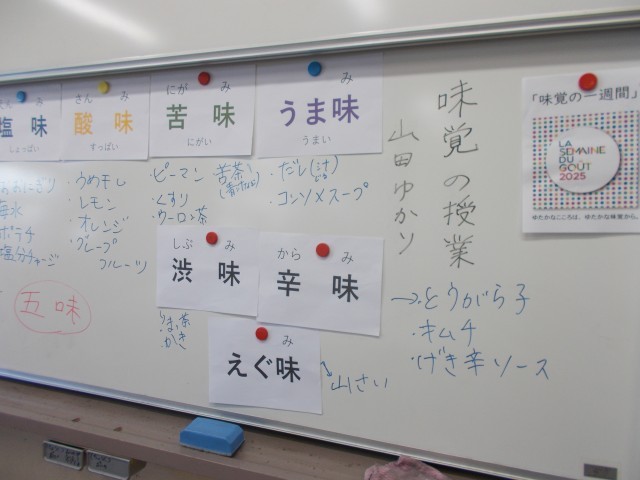 塩味
しょっぱい
さん み
酸味
すっぱい
にが み
苦味
にがい
み
うま味
うまい
・うめ干し
・レモン
・オレンジ
・グレープ
フルーツ
・ピーマン
・くすり
・ウーロン茶
苦茶
・だし
・コンソメスープ
海水
ポテチ
塩分チャージ
五味
しぶ み
渋味
から み
辛味
み
えぐ味
・まっ茶
・かき
山さい
→とうがら子
・キムチ
・げき辛ソース
味覚の授業
山田ゆかり
「味覚の一週間」
LA
SEMAINE
DU
GOÛT
2025
ゆたかなこころは、ゆたかな味覚から。